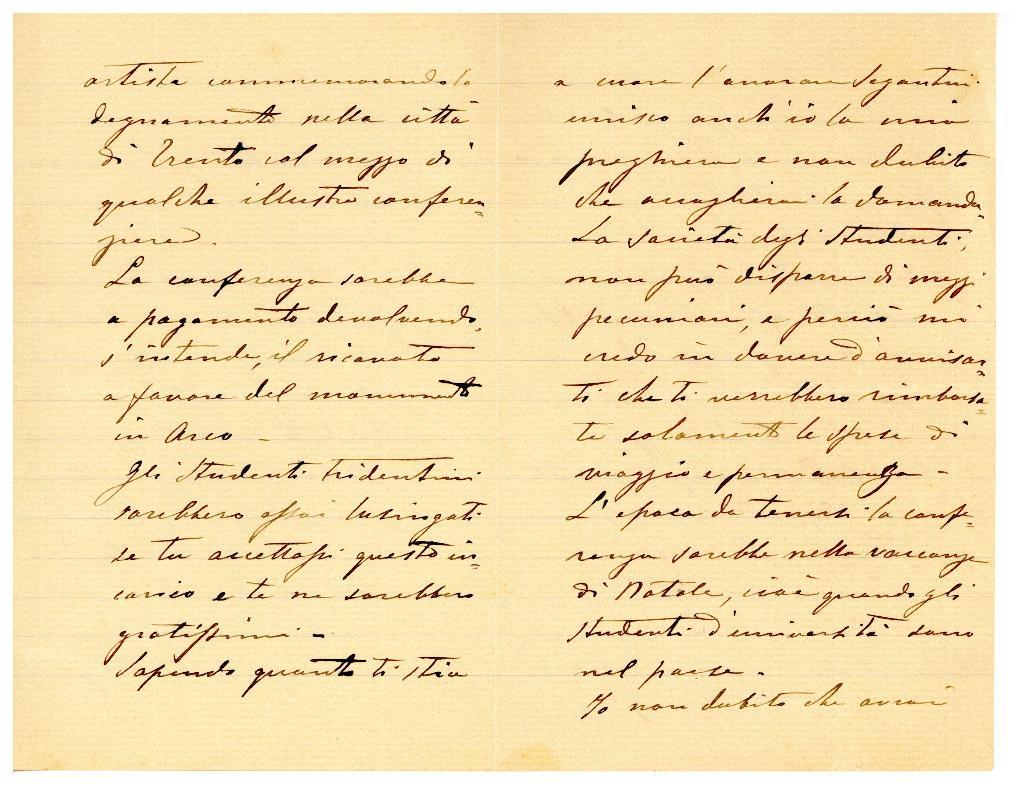 artista commemorandolo
degnamente nella città
di Trento col mezzo di
qualche illustre conferen=
ziere.
La conferenza sarebbe
a pagamento devolvendo,
s'intende, il ricavato
a favore del monumento
in Arco -
Gli Studenti tridentini
sarebbero assai lusingati
se tu accettassi questo in=
carico e te ne sarebbero
gratissimi -
Sapendo quanto ti stia
a cuore l'onorare Segantini
unisco anch'io la mia
preghiera e non dubito
che accoglierai la domanda.
La società degli Studenti,
non può disporre di mezzi
pecuniari, e perciò mi
credo in dovere d'avvisar=
ti che ti verrebbero rimborsa=
te solamente le spese di
viaggio e permanenza -
L'epoca da tenersi la confe=
renza sarebbe nelle vacanze
di Natale, cioè quando gli
Studenti d'università sono
nel paese -
Io non dubito che avrai